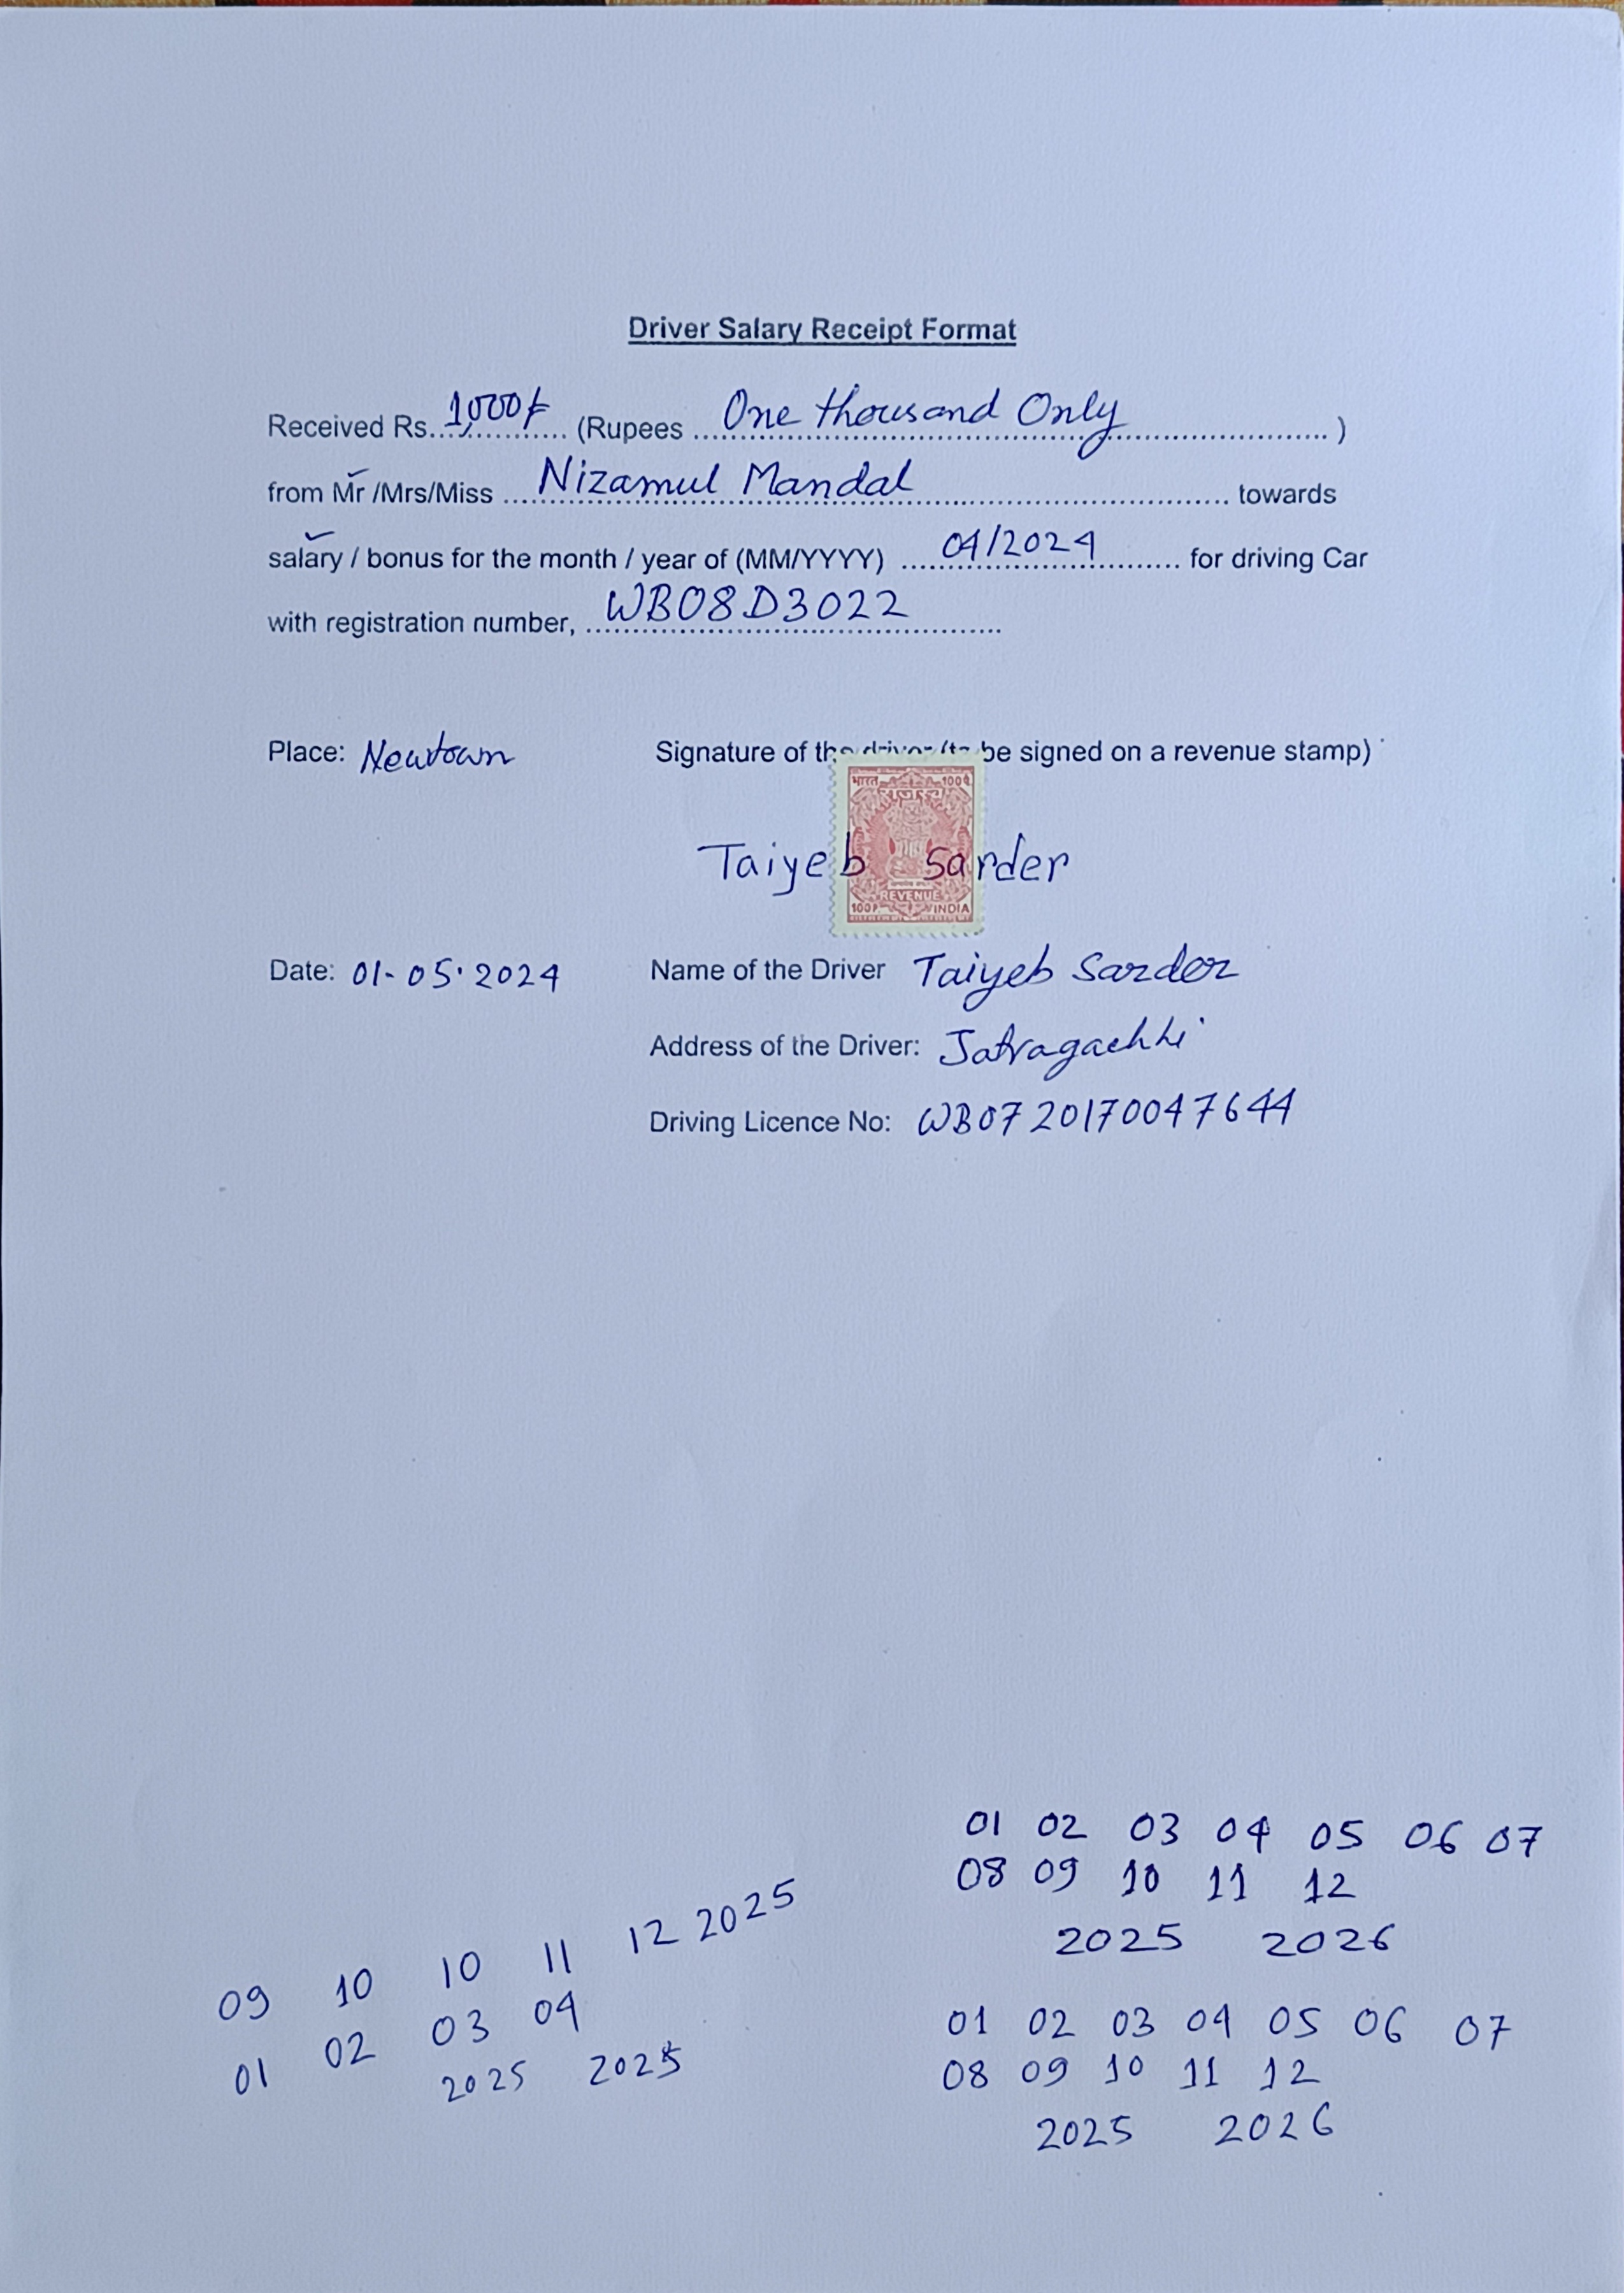 Driver Salary Receipt Format
Received Rs. 1,000/- (Rupees One thousand Only )
from Mr /Mrs/Miss Nizamul Mandal towards
salary / bonus for the month / year of (MM/YYYY) 04/2024 for driving Car
with registration number, WB08D3022
Place: Newtown Signature of the driver (to be signed on a revenue stamp)
भारत 100 पै
राजस्व
Taiyeb Sarder
REVENUE
100P INDIA
Date: 01-05.2024 Name of the Driver Taiyeb Sarder
Address of the Driver: Jatragachhi
Driving Licence No: WB0720170047644
01 02 03 04 05 06 07
08 09 10 11 12
2025 2026
09 10 10 11 12 2025
01 02 03 04
2025 2025
01 02 03 04 05 06 07
08 09 10 11 12
2025 2026